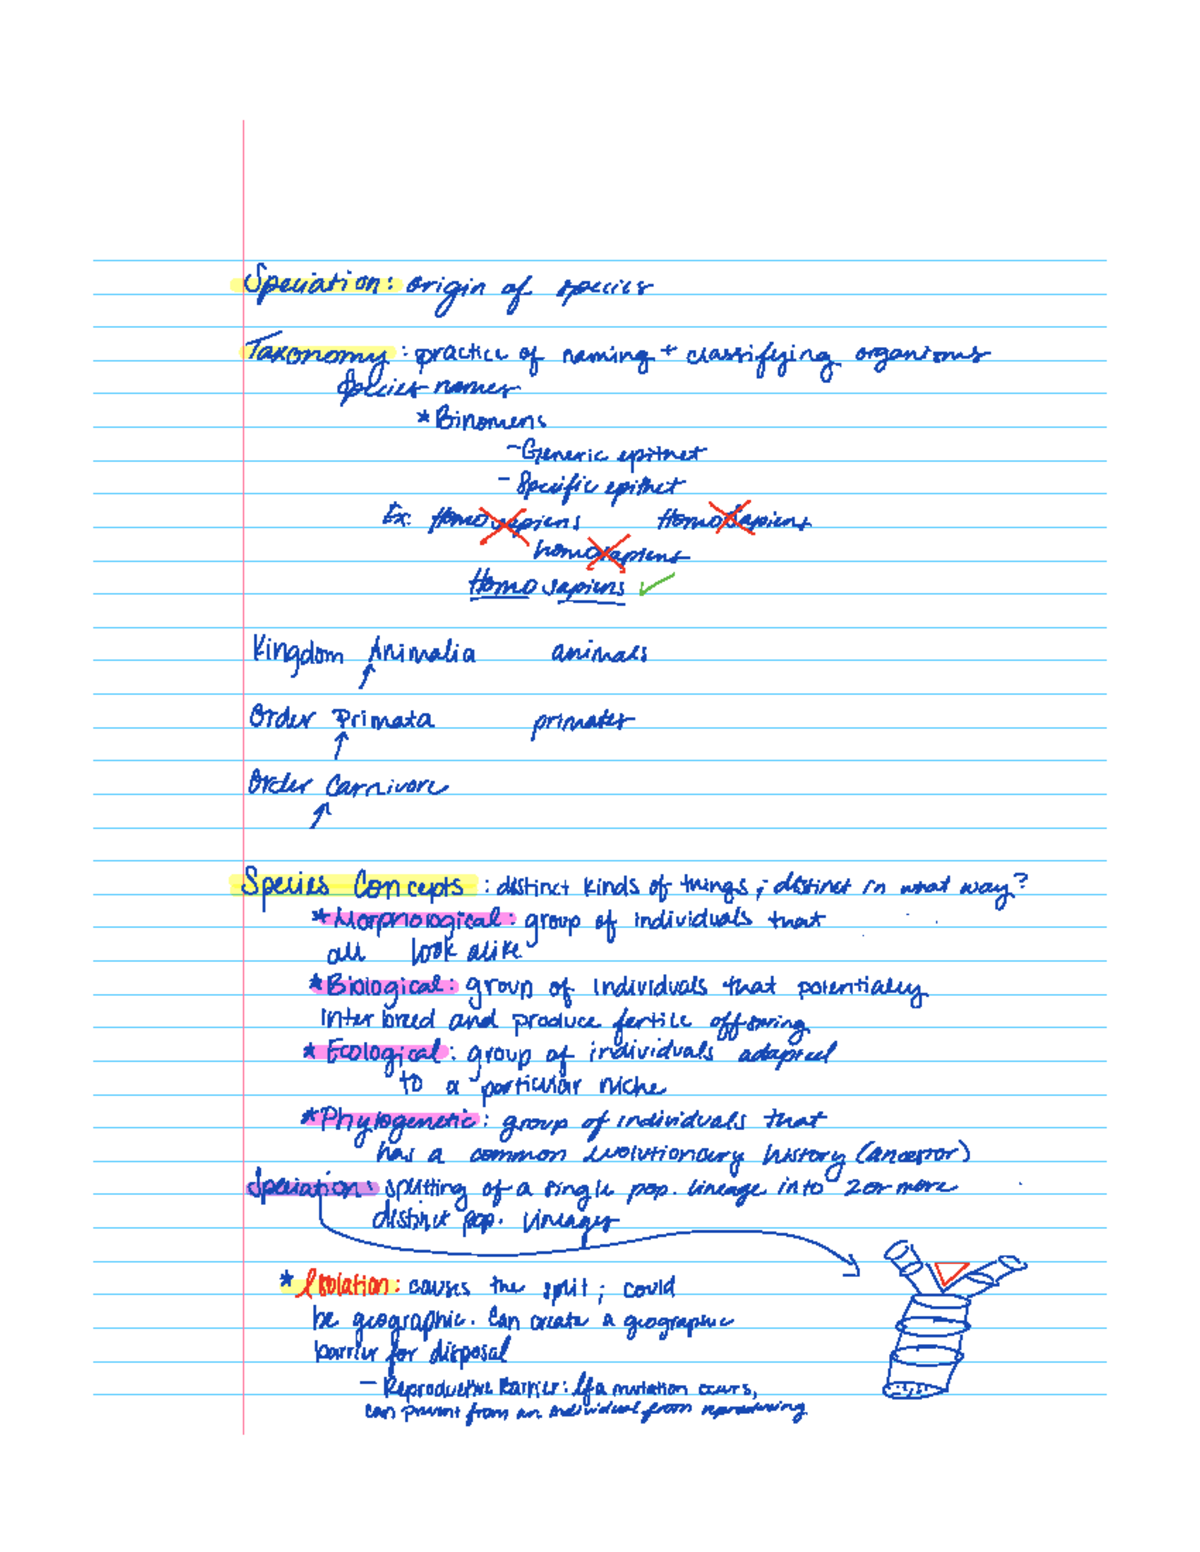 Speciation: origin of species
Taxonomy: practice of naming + classifying organisms
Species names
* Binomens
- Generic epithet
- Specific epithet
Ex: Homo sapiens Homo Sapiens
homo sapiens
Homo sapiens ✓
Kingdom Animalia animals
↑
Order Primata primates
↑
Order Carnivore
↑
Species Concepts: distinct kinds of things; distinct in what way?
* Morphological: group of individuals that
all look alike
* Biological: group of individuals that potentially
interbreed and produce fertile offspring
* Ecological: group of individuals adapted
to a particular niche
* Phylogenetic: group of individuals that
has a common evolutionary history (ancestor)
Speciation: splitting of a single pop. lineage into 2 or more
distinct pop. lineages
* Isolation: causes the split; could
be geographic. Can create a geographic
barrier for disposal
- Reproductive Barrier: If a mutation occurs,
can prevent from an individual from reproducing